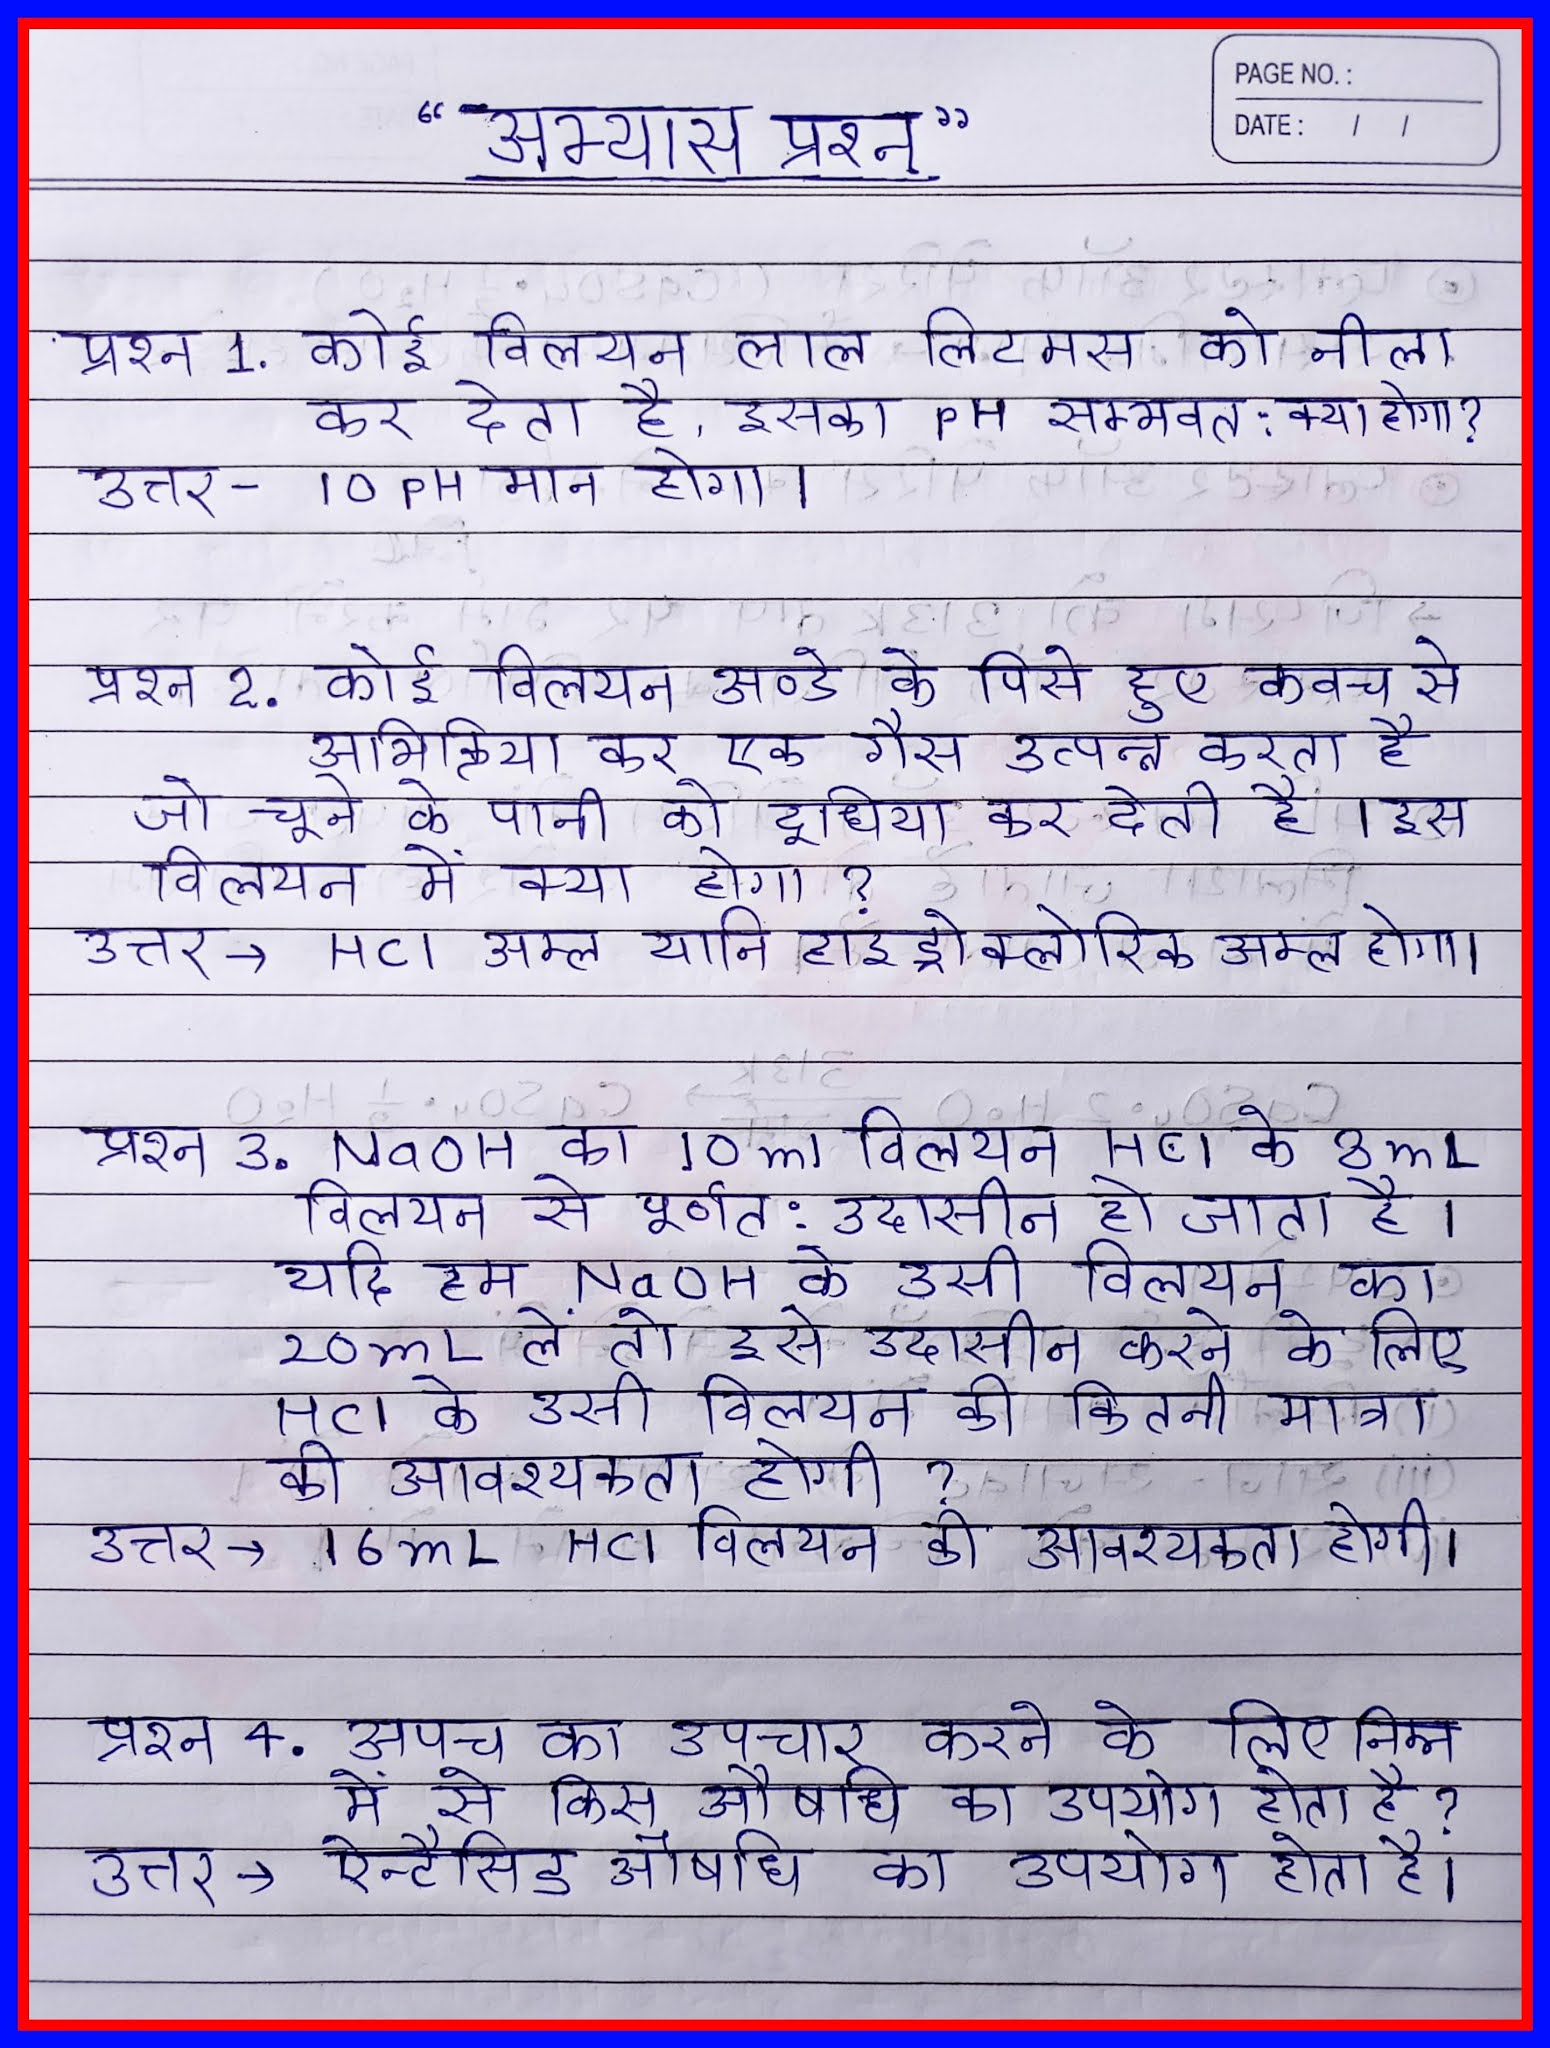 PAGE NO. :
DATE : / /
"अभ्यास प्रश्न"
प्रश्न 1. कोई विलयन लाल लिटमस को नीला
कर देता है, इसका pH सम्भवत: क्या होगा?
उत्तर - 10 pH मान होगा।
प्रश्न 2. कोई विलयन अण्डे के पिसे हुए कवच से
अभिक्रिया कर एक गैस उत्पन्न करता है
जो चूने के पानी को दूधिया कर देती है । इस
विलयन में क्या होगा ?
उत्तर → HCl अम्ल यानि हाइड्रोक्लोरिक अम्ल होगा।
प्रश्न 3. NaOH का 10 ml विलयन HCl के 8 mL
विलयन से पूर्णत: उदासीन हो जाता है ।
यदि हम NaOH के उसी विलयन का
20 mL लें तो इसे उदासीन करने के लिए
HCl के उसी विलयन की कितनी मात्रा
की आवश्यकता होगी ?
उत्तर → 16 mL HCl विलयन की आवश्यकता होगी।
प्रश्न 4. अपच का उपचार करने के लिए निम्न
में से किस औषधि का उपयोग होता है ?
उत्तर → ऐन्टैसिड औषधि का उपयोग होता है।